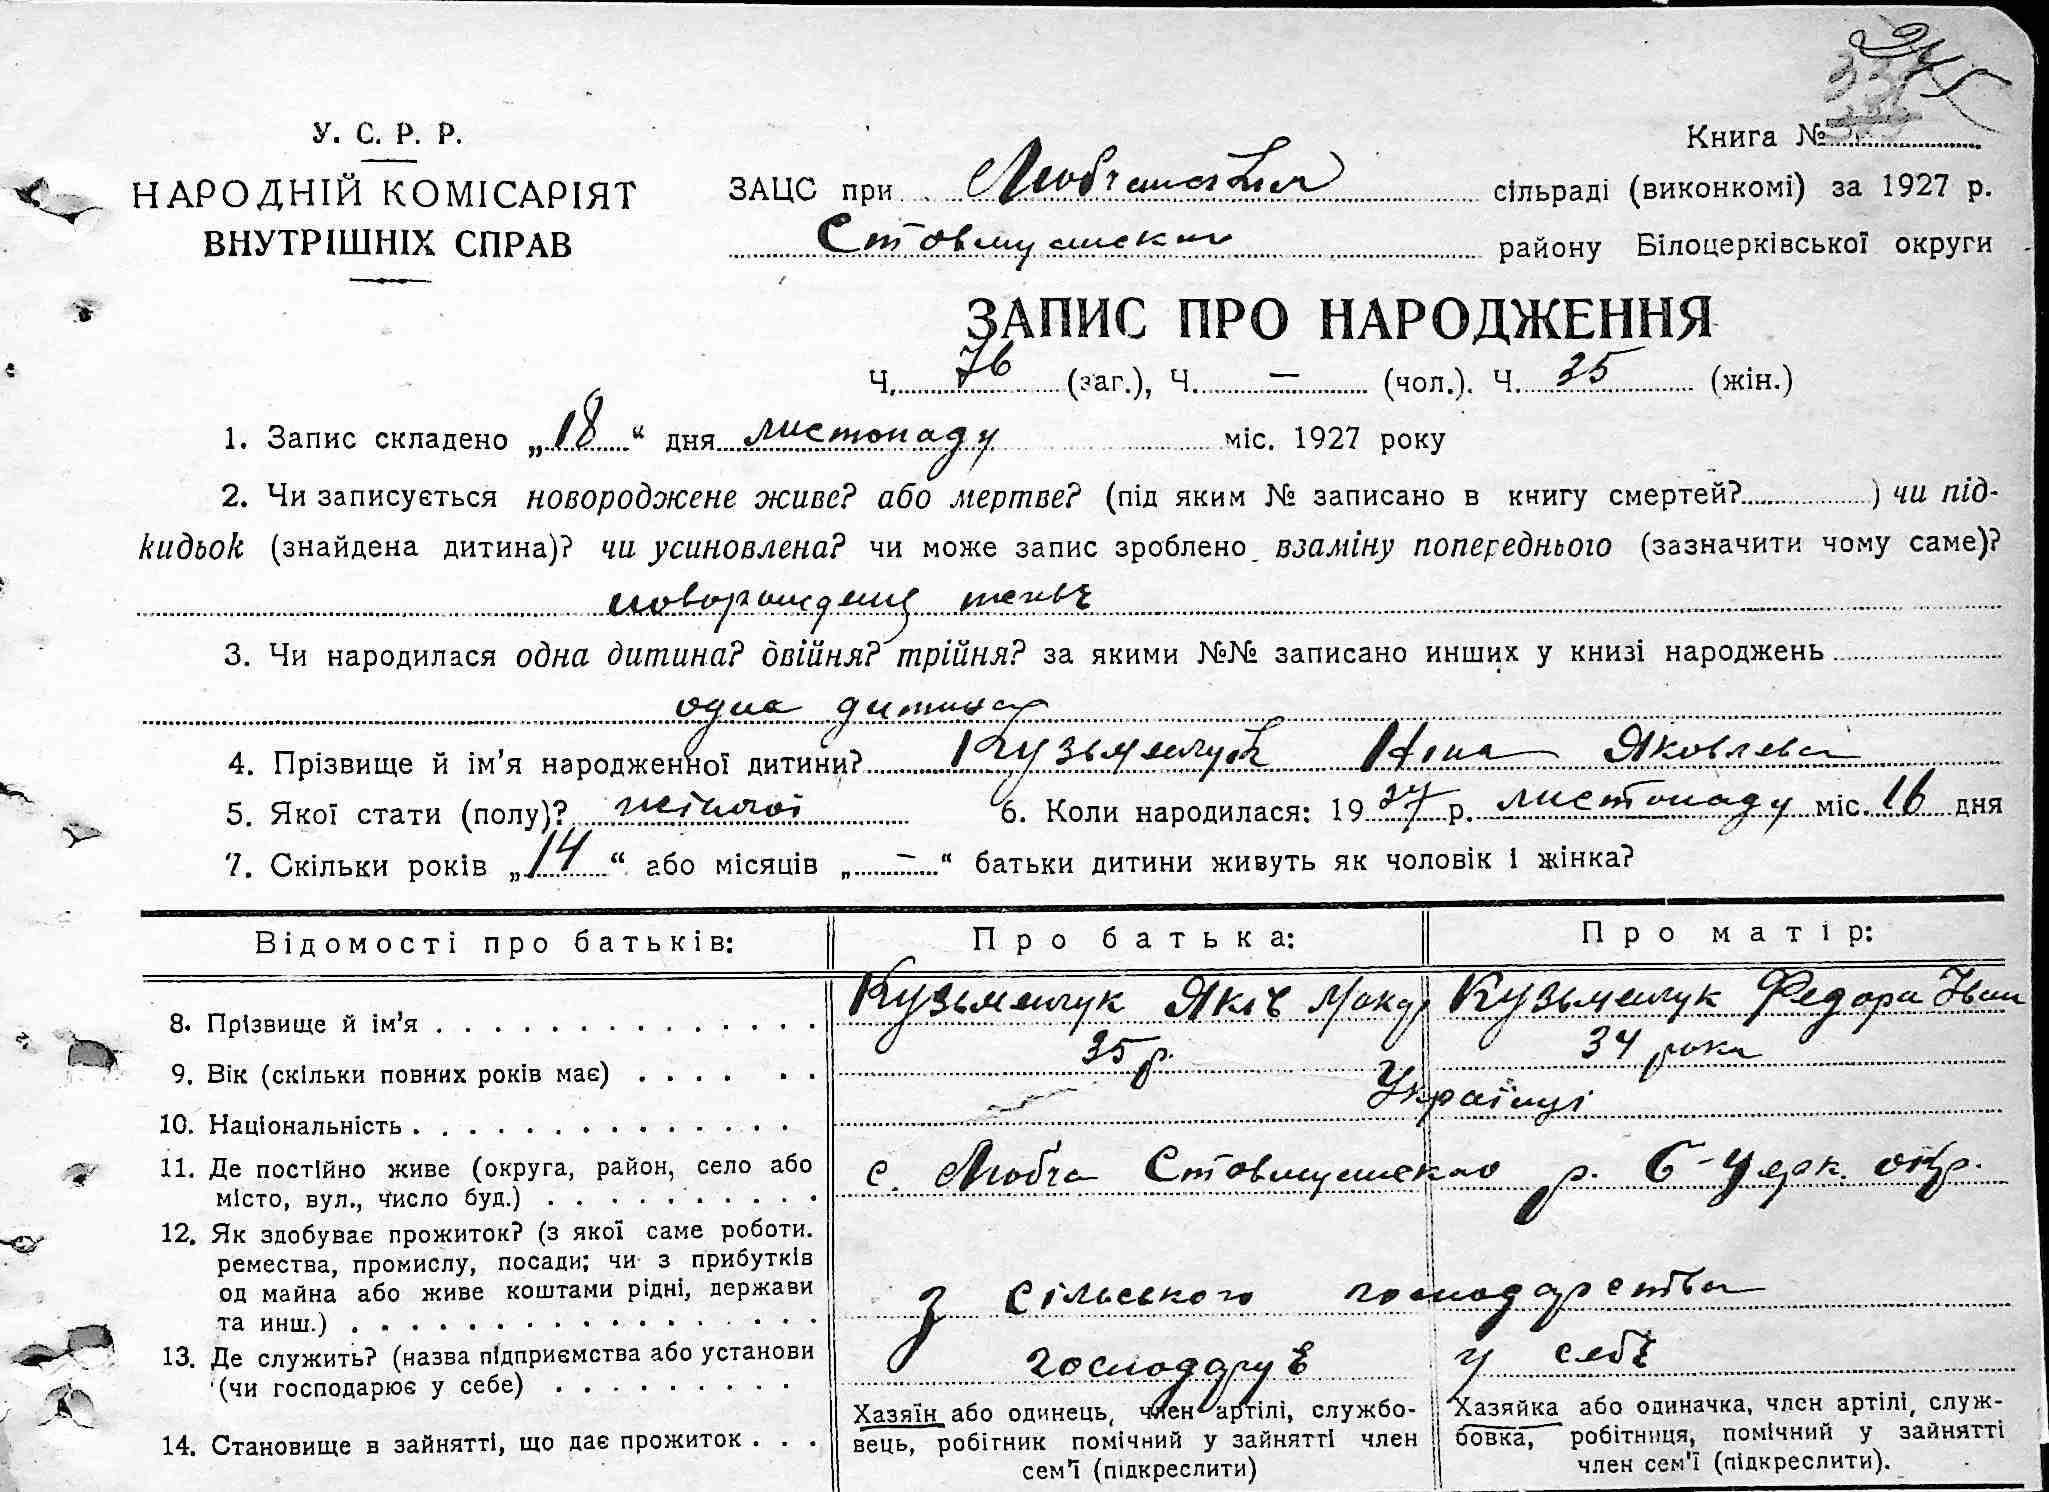 245
У. С. Р. Р.
НАРОДНІЙ КОМІСАРІЯТ
ВНУТРІШНІХ СПРАВ
Книга №
ЗАЦС при сільраді (виконкомі) за 1927 р.
району Білоцерківської округи
ЗАПИС ПРО НАРОДЖЕННЯ
Ч. 76 (заг.), Ч. — (чол.). Ч. 35 (жін.)
1. Запис складено „18“ дня листопаду міс. 1927 року
2. Чи записується новороджене живе? або мертве? (під яким № записано в книгу смертей? ) чи під-
кидьок (знайдена дитина)? чи усиновлена? чи може запис зроблено взаміну попереднього (зазначити чому саме)?
3. Чи народилася одна дитина? двійня? трійня? за якими №№ записано инших у книзі народжень
одна дитина
4. Прізвище й ім'я народженної дитини? Кузьменчук Ніна Яковлева
5. Якої стати (полу)? жіночої 6. Коли народилася: 1927 р. листопаду міс. 16 дня
7. Скільки років „14“ або місяців „—“ батьки дитини живуть як чоловік і жінка?
Відомості про батьків: Про батька: Про матір:
8. Прізвище й ім'я . . . . . . . . . . . . . . Кузьменчук Яків Макар Кузьменчук Федора Іван
9. Вік (скільки повних років має) . . . . . . 35 р. 34 рока
10. Національність . . . . . . . . . . . . . . Українці
11. Де постійно живе (округа, район, село або
місто, вул., число буд.) . . . . . . . . . . с. Любча р. Б-Церк. окр.
12. Як здобуває прожиток? (з якої саме роботи.
ремества, промислу, посади; чи з прибутків
од майна або живе коштами рідні, держави
та инш.) . . . . . . . . . . . . . . . . . з сільського господарства
13. Де служить? (назва підприємства або установи
(чи господарює у себе) . . . . . . . . . . господарує у себе
14. Становище в зайнятті, що дає прожиток . . .
Хазяїн або одинець, член артілі, службо-
вець, робітник помічний у зайнятті член
сем'ї (підкреслити)
Хазяйка або одиначка, член артілі, служ-
бовка, робітниця, помічний у зайнятті
член сем'ї (підкреслити).